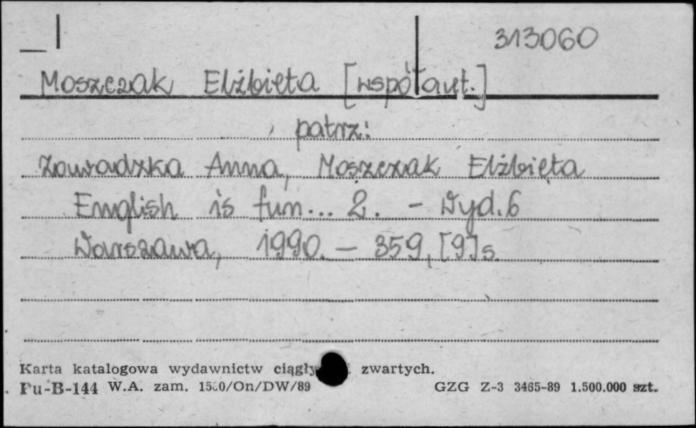 313060
Moszczak Elżbieta [współaut.]
patrz:
Zawadzka Anna, Moszczak Elżbieta
English is fun... 2. - Wyd. 6
Warszawa, 1990. - 359, [9] s.
Karta katalogowa wydawnictw zwartych.
Pu-B-144 W.A. zam. /On/DW/89 GZG Z-3 3465-89 1.500.000 szt.